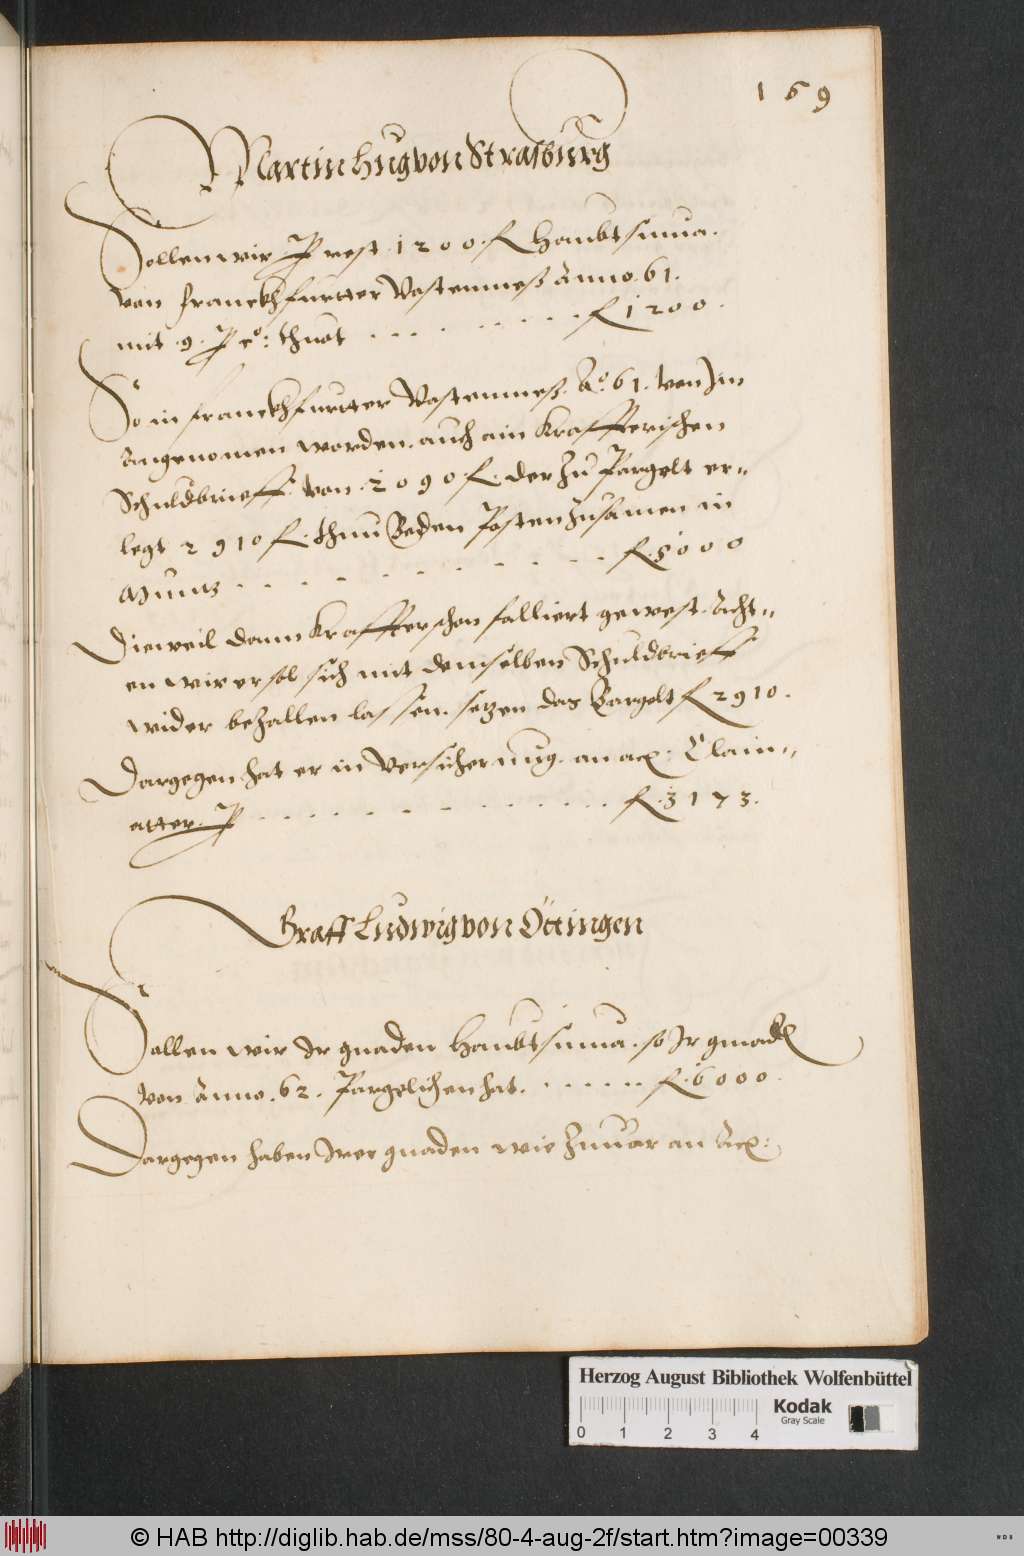 169
Martin Hug von Strasburg
Sollen wir P rest 1200 . fl Haubtsuma .
von Franckhfurtter Vastenmeß Anno . 61 .
mit . 9 . P co: thuet . . . . . . . . fl 1200 .
So in Franckhfurtter Vastenmeß . Ao 61 . von Im
Angenomen worden . auch ain Kraffterischen
Schuldbrieff . von . 2090 . fl . der Zu Pargelt er=
legt 2910 fl . thuu Beden Posten Zusamen in
Muntz . . . . . . . . . . . fl . 5000
Dieweil dann Kraffter schon falliert gewest . Acht=
en wir er sol sich mit demselben Schuldbrieff
wider bezallen lassen . setzen das Bargelt fl 2910 .
Dargegen hat er in Versicherung . an acx: Clain=
atter . P . . . . . . . . . . . fl . 3173 .
Graff Ludwig von Öttingen
Sollen wir Ir gnaden Haubtsuma . so Ir gnad
von Anno . 62 . Pargelichen hat . . . . . . . fl . 6000 .
Dargegen haben Irer gnaden wie Zuuor an Acx:
Herzog August Bibliothek Wolfenbüttel
Kodak
Gray Scale
0 1 2 3 4
© HAB http://diglib.hab.de/mss/80-4-aug-2f/start.htm?image=00339